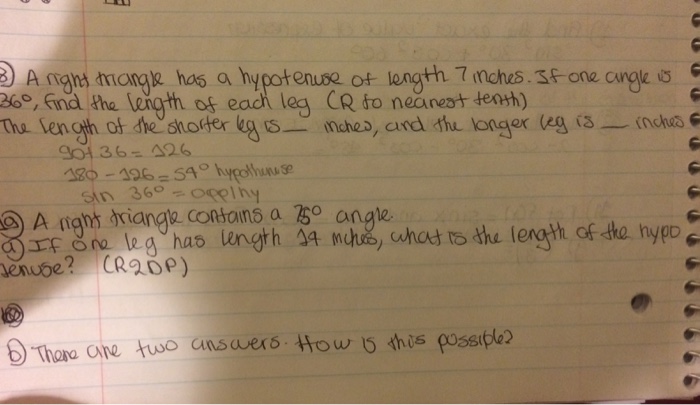 8) A right triangle has a hypotenuse of length 7 inches. If one angle is
36°, find the length of each leg (R to nearest tenth)
The length of the shorter leg is __ inches, and the longer leg is __ inches
90+36=126
180-126=54° hypothenuse
sin 36° = opp/hy
9) A right triangle contains a 75° angle.
a) If one leg has length 14 inches, what is the length of the hypo
tenuse? (R2DP)
b) There are two answers. How is this possible?